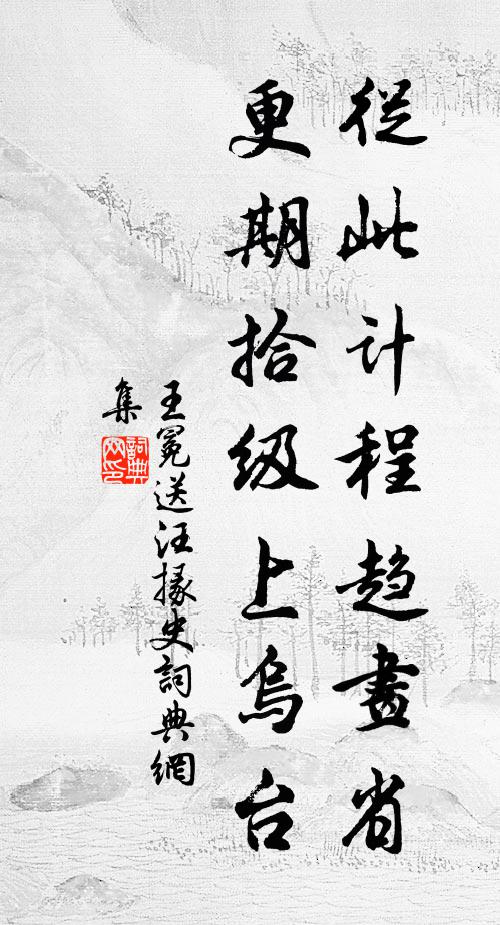 從此计程趋畫省
更期拾级上烏台
王冕送汪掾史詞典網
集
詞典网印